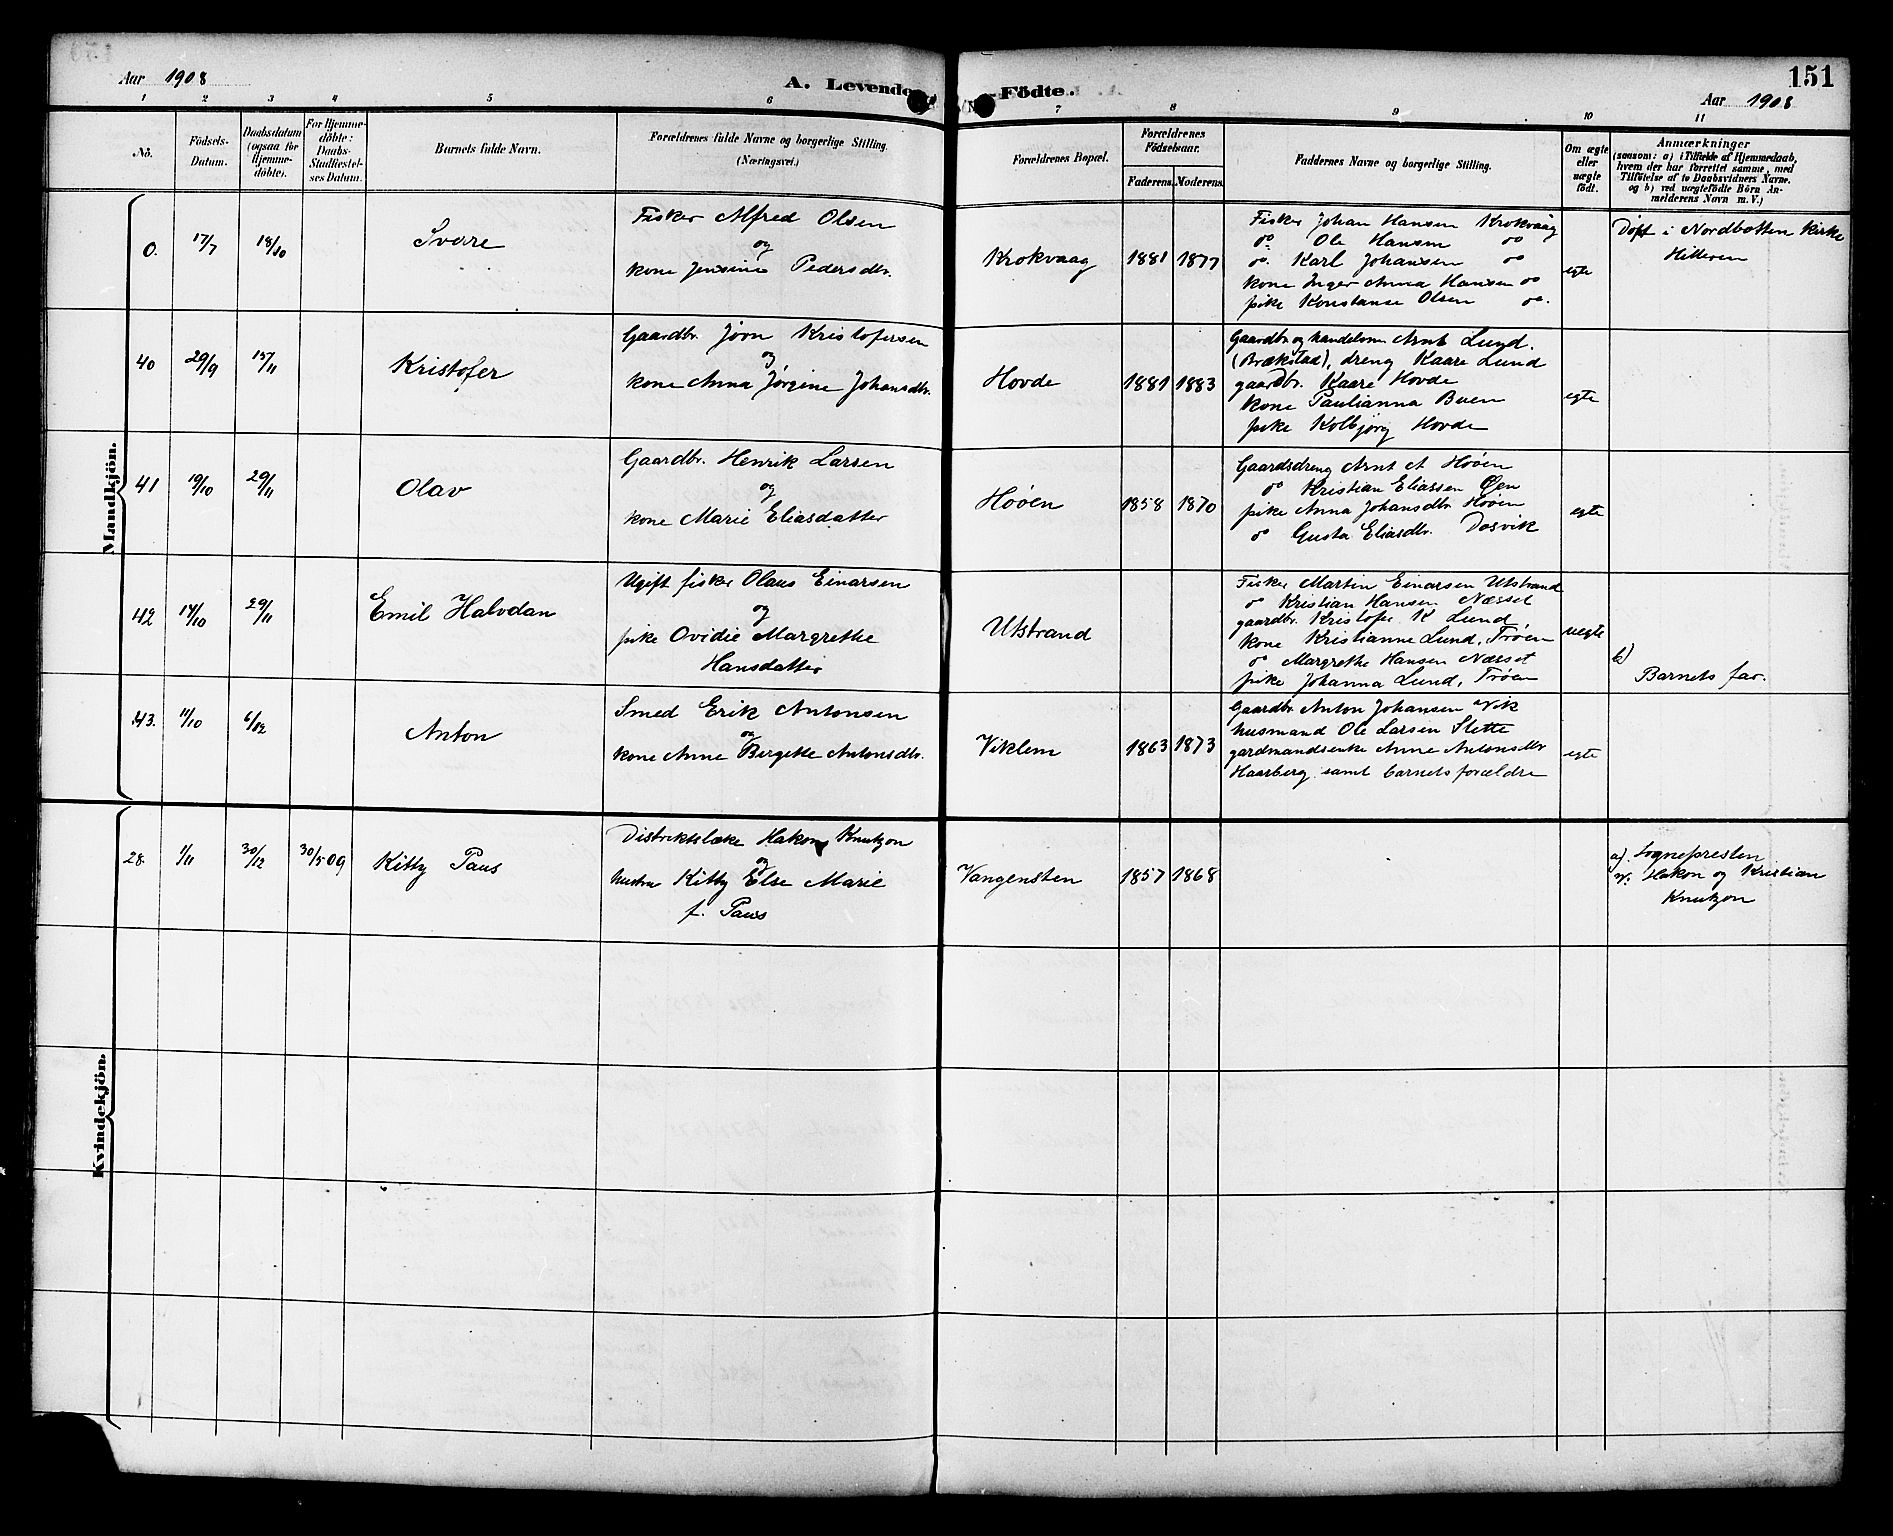 Aar 1908
A. Levende Födte.
Aar 1908
151
1 2 3 4 5 6 7 8 9 10 11
No.
Födsels-Datum.
Daabsdatum (ogsaa for Hjemmedöbte).
For Hjemmedöbte: Daabs-Stadfæstelses Datum.
Barnets fulde Navn.
Forældrenes fulde Navne og borgerlige Stilling. (Næringsvei.)
Forældrenes Bopæl.
Forældrenes Födselsaar.
Faderens.
Moderens.
Faddernes Navne og borgerlige Stilling.
Om ægte eller uægte födt.
Anmærkninger
(saasom: a) i Tilfælde af Hjemmedaab, hvem der har forrettet samme, med Tilföielse af to Daabsvidners Navne. og b) ved uægtefödte Börn Anmelderens Navn m. V.)
Mandkjön.
0. 17/7 18/10 Sverre
Fisker Alfred Olsen
og
kone Jensine Pedersdtr.
Krokvaag 1881 1877
Fisker Johan Hansen Krokvaag
do Ole Hansen do
do. Karl Johansen do
kone Inger Anna Hansen do
pike Konstanse Olsen do.
egte
Döpt i Nordbotten kirke
Hitteren
40 29/9 15/11 Kristofer
Gaardbr. Jörn Kristofersen
og
kone Anna Jørgine Johansdtr.
Hovde 1881 1883
Gaardbr og handelsm Arnt Lund.
(Brækstad), dreng Kaare Lund
gaardbr. Kaare Hovde
kone Paulianna Buen
pike Kolbjørg Hovde
egte
41 19/10 29/11 Olav
Gaardbr. Henrik Larsen
og
kone Marie Eliasdatter
Høöen 1858 1870
Gaardsdreng Arnt A Høöen
do Kristian Eliassen Øen
pike Anna Johansdtr Høöen
do Gusta Eliasdtr. Dosvik
egte
42 14/10 29/11 Emil Halvdan
Ugift fisker Olaus Einarsen
og
pike Ovidie Margrethe
Hansdatter
Utstrand
Fisker Martin Einarsen Utstrand
do Kristian Hansen Næsset
gaardbr. Kristofer K Lund
kone Kristianne Lund, Trøen
do Margrethe Hansen Næsset
pike Johanna Lund, Trøen
uegte
b)
Barnets far.
43. 11/10 6/12 Anton
Smed Erik Antonsen
og
kone Anne Bergitte Antonsdtr.
Viklem 1863 1873
Gaardbr Anton Johansen Vik
husmand Ole Larsen Slette
gardmandsenke Anne Antonsdtr
Haarberg samt barnets forældre
egte
Kvindekjön.
28. 1/11 30/12 30/5 09 Kitty Paus
Distriktslæke Hakon Knutzon
og
hustru Kitty Else Marie
f. Paus
Vangensten 1857 1868
a). Sognepresten
v: Hakon og Kristian
Knutzon